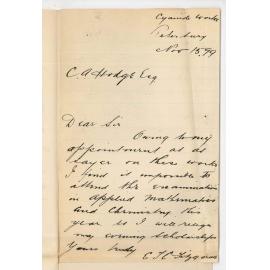 Cyanide Works
Nov 15, 99
C A Hodge Esq
Dear Sir
Owing to my
appointment as as
sayer on these works
I find it impossible to
attend the examination
in Applied Mathematics
and Chemistry this
year so I will resign
my coming scholarship
Yours truly